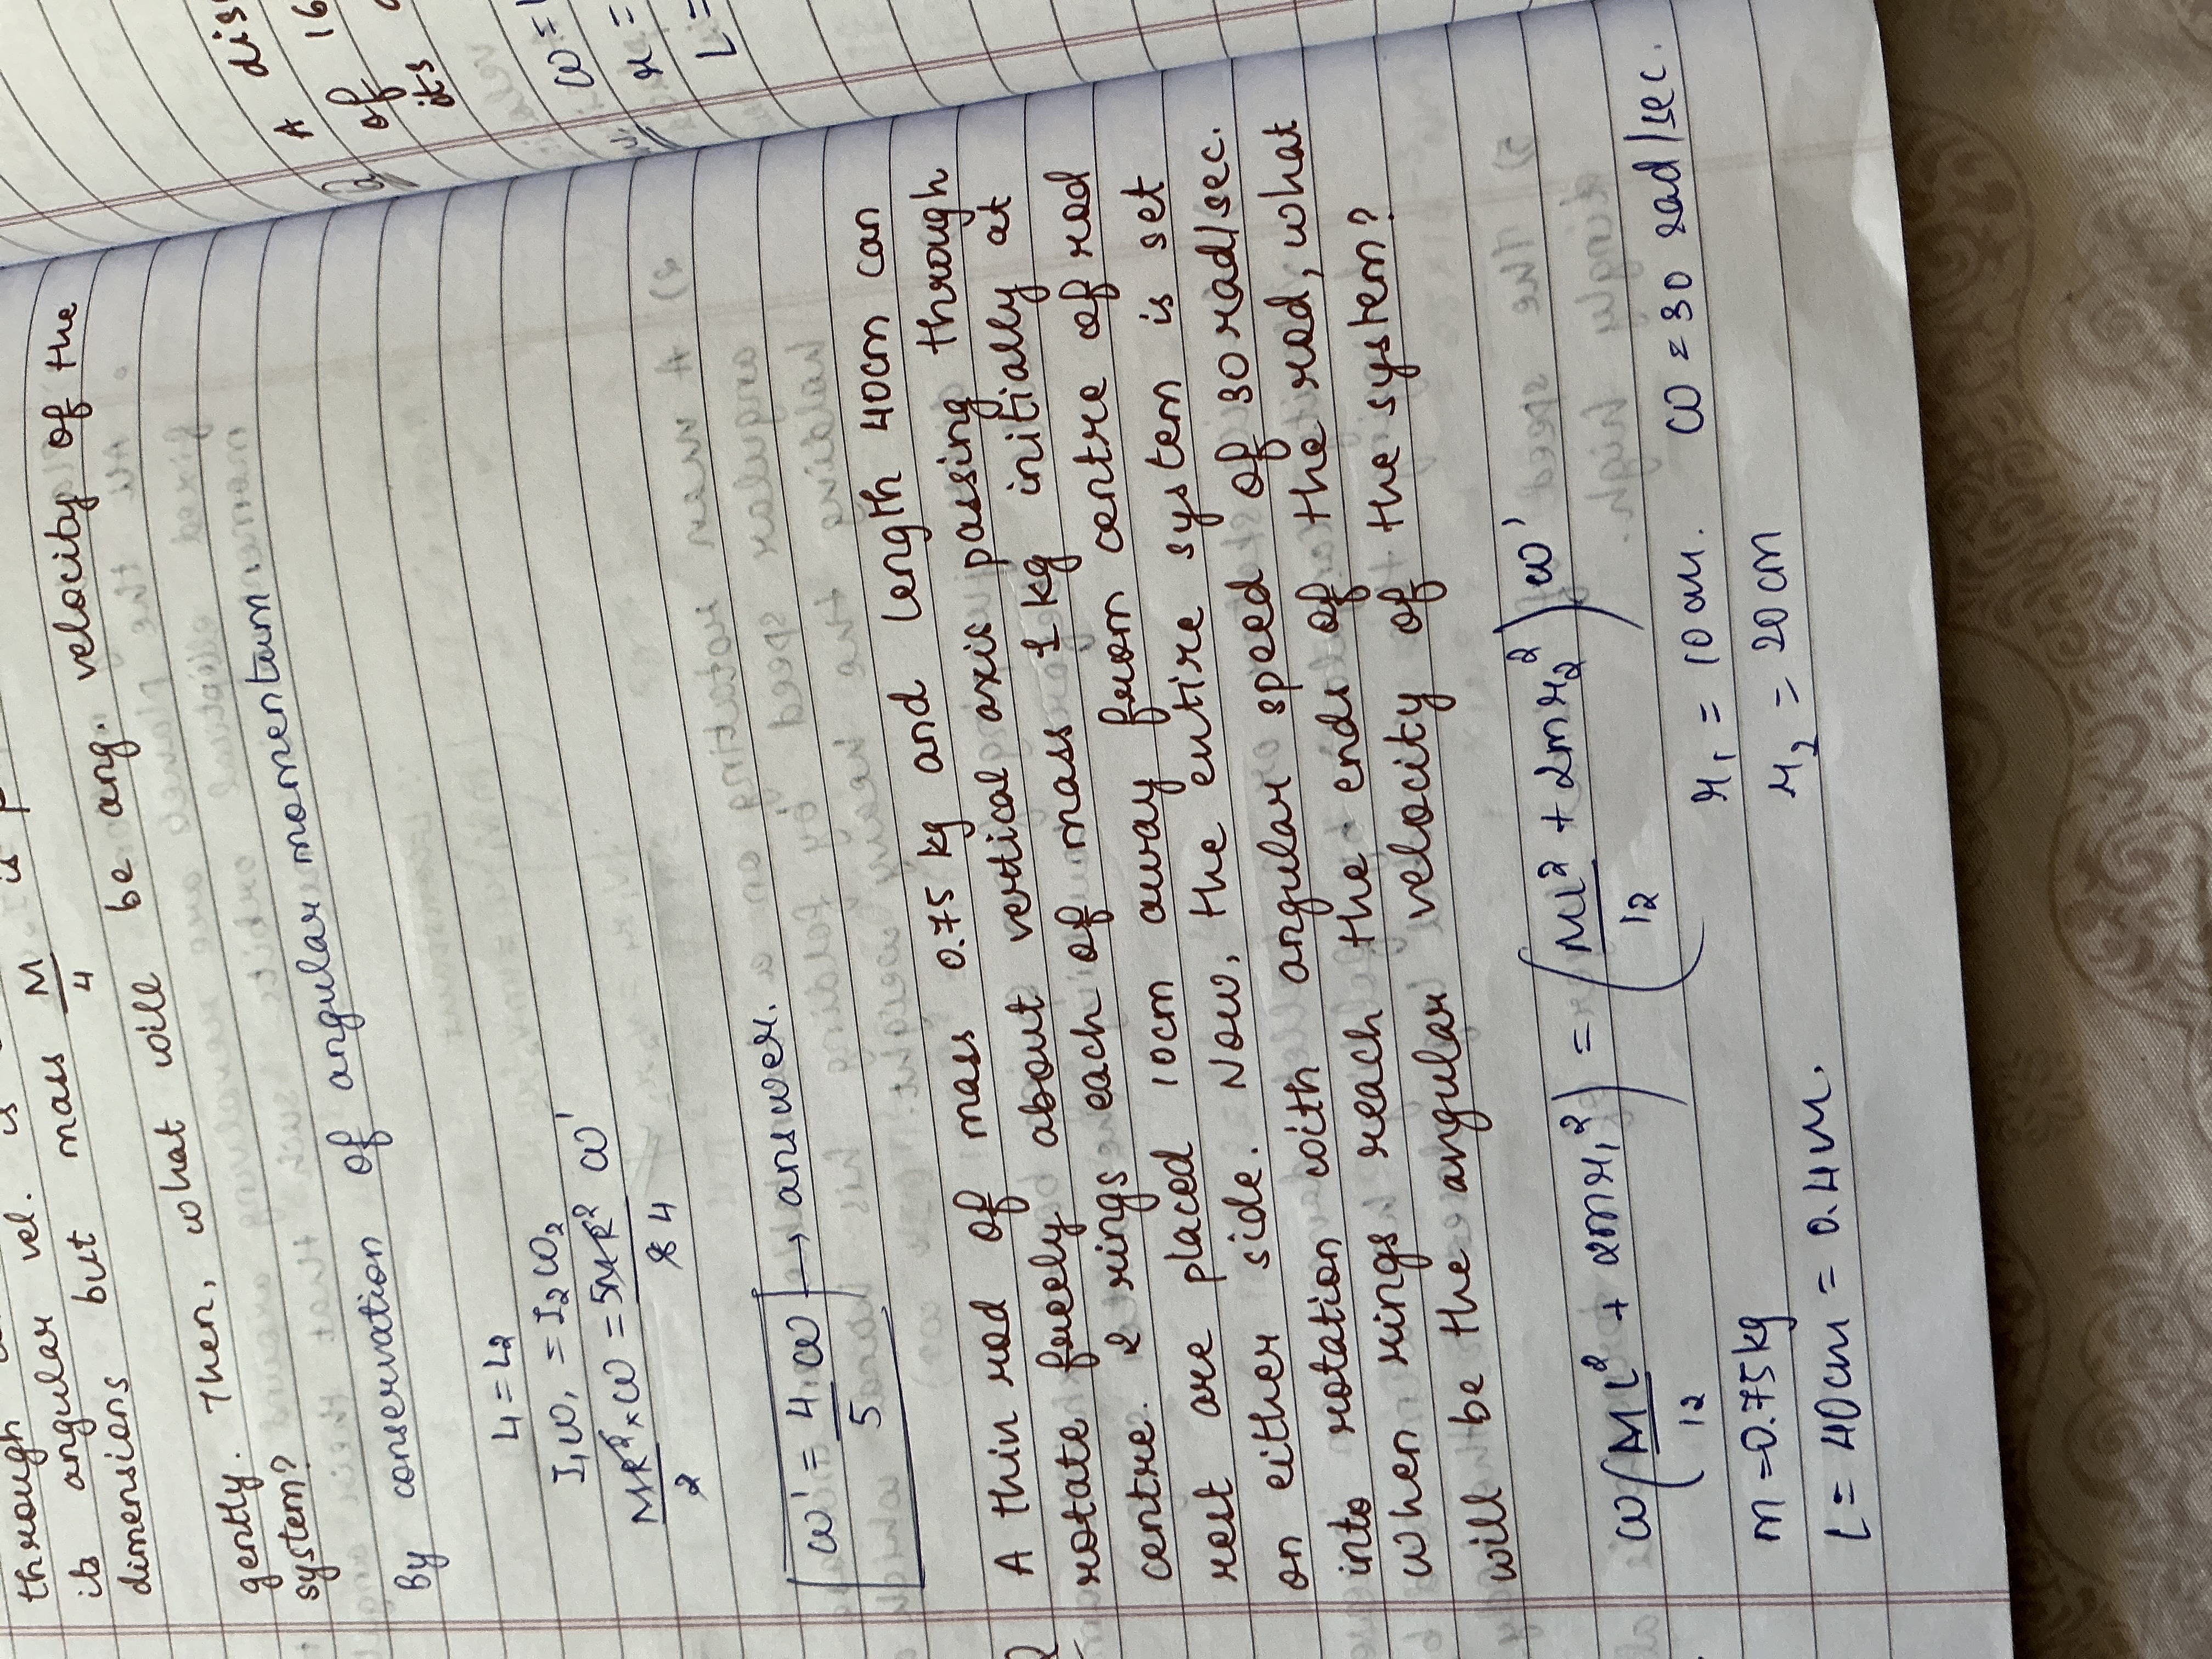 through
vel. is
its angular but mass M/4 is
dimensions be ang. velocity of the
gently. Then, what will
system?
By conservation of angular momentum
L1 = L2
I1ω1 = I2ω2
MR²/2 × ω = 5MR²/8 4 ω'
ω' = 4/5 ω → answer.
Q A thin rod of mass 0.75 kg and length 40cm can
rotate freely about vertical axis passing through
centre. 2 rings each of mass 1 kg initially at
rest are placed 10cm away from centre of rod
on either side. Now, the entire system is set
into rotation with angular speed of 30 rad/sec.
when rings reach the ends of the rod, what
will be the angular velocity of the system?
ω(ML²/12 + 2mr1²) = (ML²/12 + 2mr2²)ω'
m = 0.75kg r1 = 10cm. ω = 30 rad/sec.
L = 40cm = 0.4m. r2 = 20cm
A dis
of 16
its
ω =
r =
L =